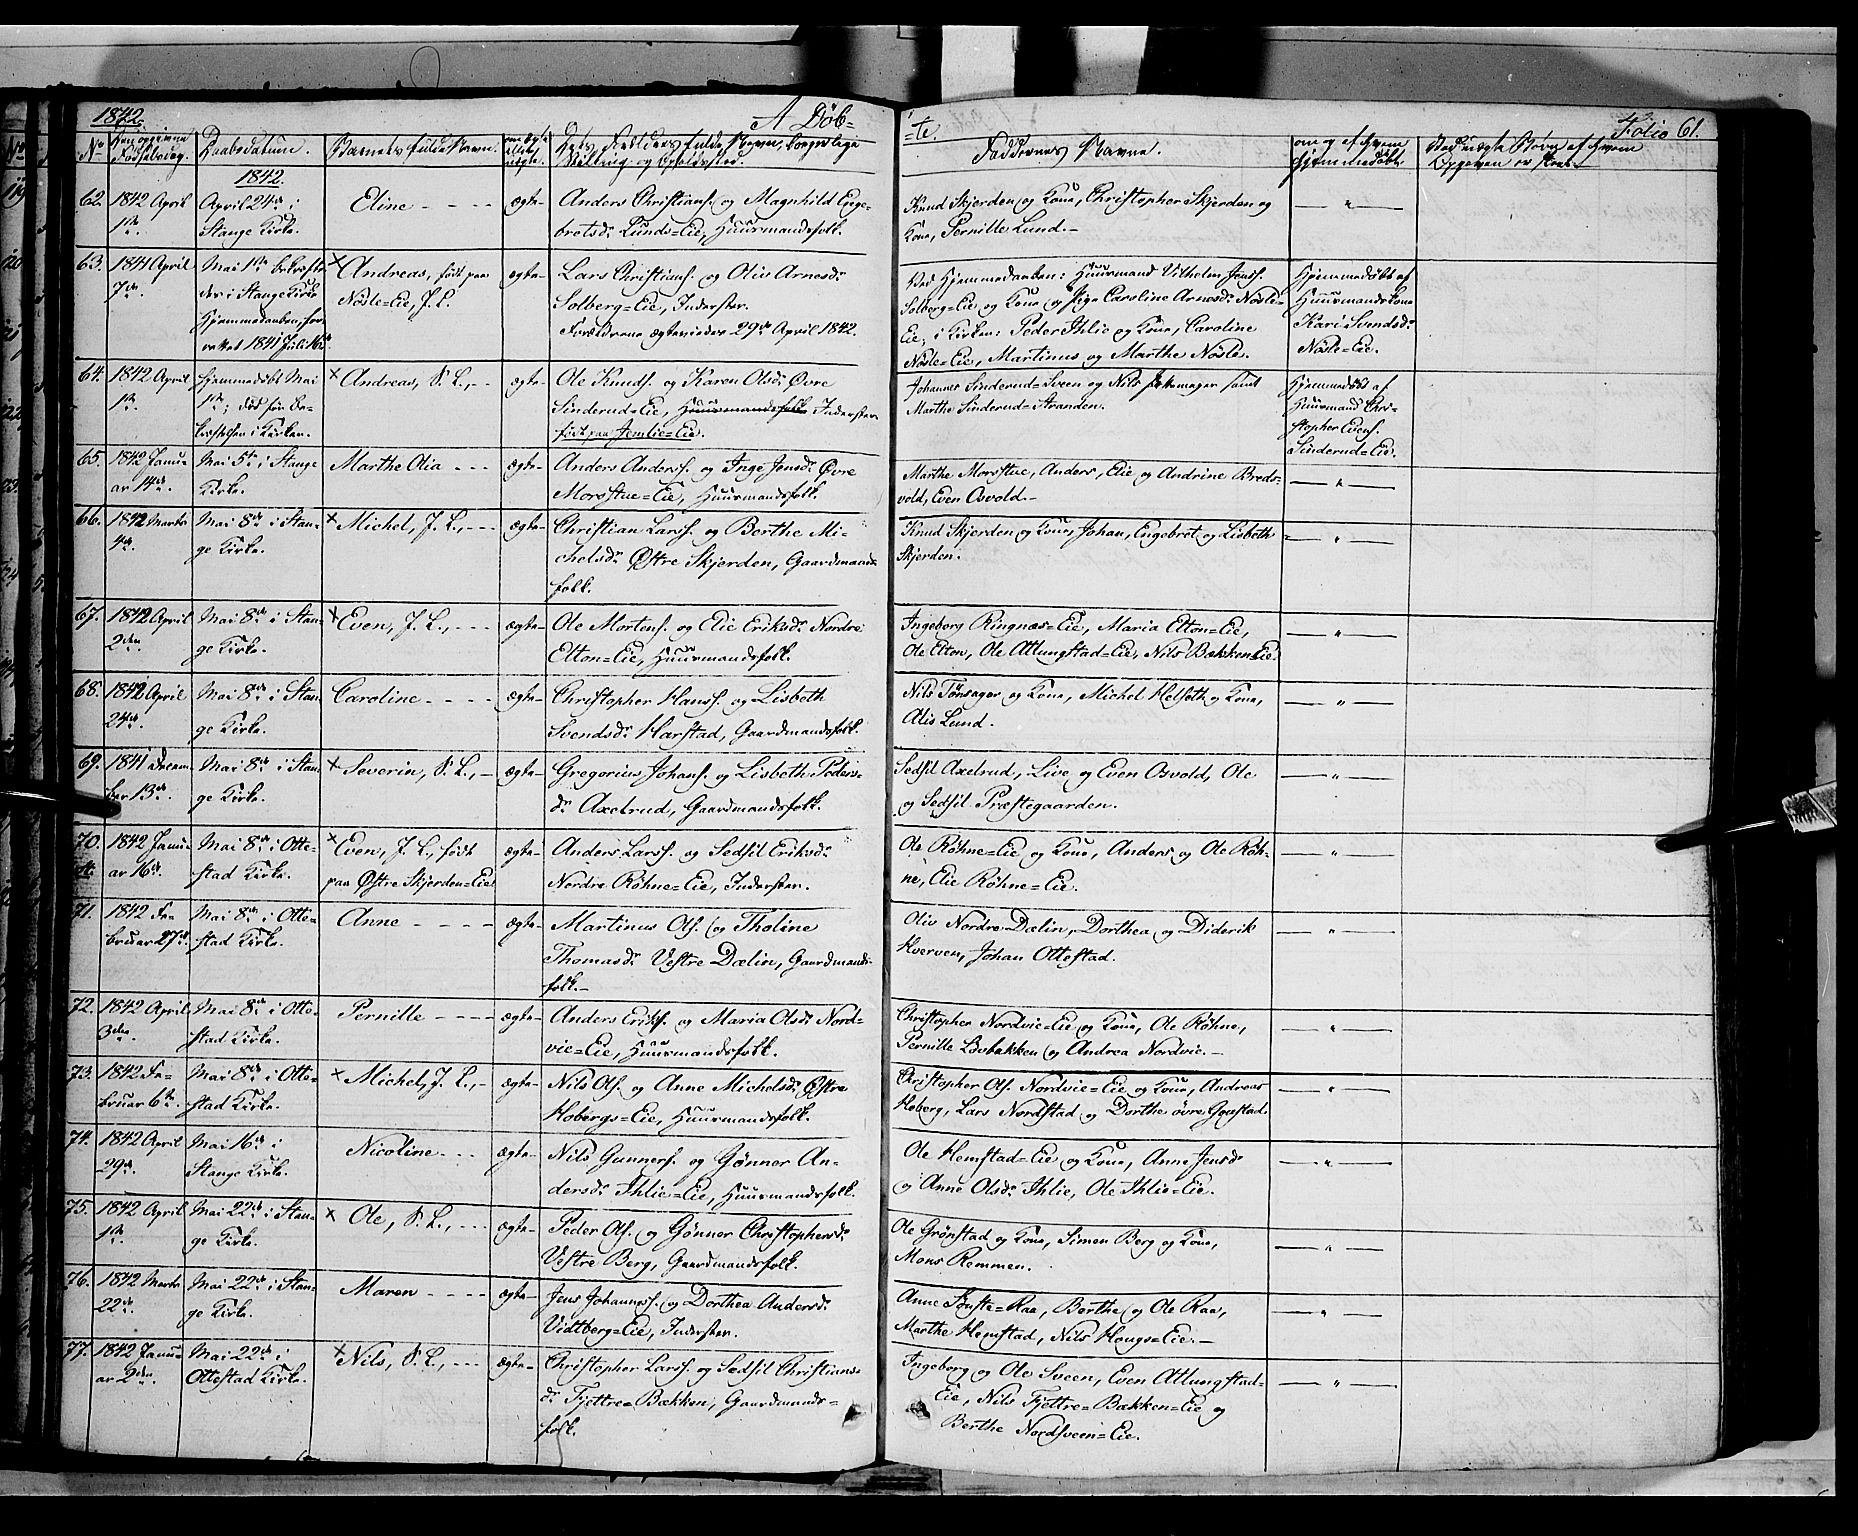 1842.
A Döb-
No
Den opgivne Fødselsdag.
Daabsdatum.
Barnets fulde Navn.
Forældres fulde Navne, borgerlige
Stilling og Opholdssted.
1842.
62. 1842 April 1ste. April 24de i Stange Kirke. Eline - - - - ægte- Anders Christians. og Magnhild Engebretsdr Lunds=Eie, Huusmandsfolk.
63. 1841 April 7de. Mai 1ste bekræftedes i Stange Kirke Hjemmedaaben, forrettet 1841 Juli 16de. × Andreas, født paa Nösle=Eie, J. L. ægte- Lars Christians. og Oliv Arnesdr Solberg=Eie, Inderster. Forældrene ægteviedes 29de April 1842.
64. 1842 April 1ste. Hjemmedöbt Mai 1ste; död för Bekræftelsen i Kirken. × Andreas, S. L., - ægte- Ole Knuds. og Karen Olsdr Øvre Sinderud=Eie, Huusmandsfolk Inderster. født paa Jemlie=Eie.
65. 1842 Januar 14de. Mai 5te i Stange Kirke. Marthe Olia - - - ægte- Anders Anders. og Inge Jensdr Øvre Morstue=Eie, Huusmandsfolk.
66. 1842 Marts 4de. Mai 8de i Stange Kirke. × Michel, J. L., - - - ægte- Christian Lars. og Berthe Michelsdr Østre Skjerden, Gaardmandsfolk.
67. 1842 April 2den. Mai 8de i Stange Kirke. × Even, J. L., - - - ægte- Ole Mortens. og Elie Eriksdr Nordre Etton=Eie, Huusmandsfolk.
68. 1842 April 24de. Mai 8de i Stange Kirke. Caroline - - - - ægte- Christopher Hans. og Lisbeth Svendsdr Harstad, Gaardmandsfolk.
69. 1841 December 13de. Mai 8de i Stange Kirke. × Severin, S. L., - ægte- Gregorius Johans. og Lisbeth Pedersdr Axelrud, Gaardmandsfolk.
70. 1842 Januar 16de. Mai 8de i Ottestad Kirke. × Even, J. L., født paa Østre Skjerden=Eie ægte- Anders Lars. og Sedsil Eriksdr Nordre Röhne=Eie, Inderster.
71. 1842 Februar 27de. Mai 8de i Ottestad Kirke. Anne - - - - ægte- Martinus Ols. og Tholine Thomasdr Vestre Dælin, Gaardmandsfolk.-
72. 1842 April 3den. Mai 8de i Ottestad Kirke. Pernille - - - - ægte- Anders Eriks. og Maria Olsdr Nordvie=Eie, Huusmandsfolk.
73. 1842 Februar 6te. Mai 8de i Ottestad Kirke. × Michel, J. L., - ægte- Nils Ols. og Anne Michelsdr Østre Hobergs=Eie, Huusmandsfolk.
74. 1842 April 29de. Mai 16de i Stange Kirke. Nicoline - - - ægte- Nils Gunners. og Gönner Andersdr Ihlie=Eie, Huusmandsfolk.
75. 1842 April 1ste. Mai 22de i Stange Kirke. × Ole, S. L., - - - ægte- Peder Ols. og Gönner Christophersdr Vestre Berg, Gaardmandsfolk.
76. 1842 Marts 22de. Mai 22de i Stange Kirke. Maren - - - - ægte- Jens Johannes. og Dorthea Andersdr Vidtberg=Eie, Inderster.
77. 1842 Januar 2den. Mai 22de i Ottestad Kirke. × Nils, S. L., - - - ægte- Christopher Lars. og Sedsil Christiansdr Fjettre=Bækken, Gaardmandsfolk.
-te.
Folio 61.
Faddernes Navne.
om og af hvem hjemmedöbt.
Knud Skjerden og Kone, Christopher Skjerden og
Kone, Pernille Lund.-
Ved Hjemmedaaben: Huusmand Vilhelm Jens.
Solberg=Eie og Kone og Pige Caroline Arnesdr Nösle=
Eie, i Kirken: Peder Ihlie og Kone, Caroline
Nösle=Eie, Martinus og Marthe Nösle.
Hjemmedöbt af
Huusmandskone
Kari Svendsdr
Nösle=Eie.
Johannes Sinderud=Sveen og Nils samt
Marthe Sinderud=Stranden.
Hjemmedöbt af
Huusmand Chri-
stopher Evens.
Sinderud=Eie.
Marthe Morstue, Anders, Elie og Andrine Breds-
vold, Even Osvold.-
Knud Skjerden og Kone, Johan, Engebret og Lisbeth
Skjerden.
Ingeborg Ringnæs=Eie, Maria Etton=Eie,
Ole Etton, Ole Attungstad=Eie, Nils Bækken=Eie.
Nils Tönsager og Kone, Michel Helseth og Kone,
Alis Lund.
Sedsil Axelrud, Live og Even Osvold, Ole
og Sedsil Præstegaarden.
Ole Röhne=Eie og Kone, Anders og Ole Röh-
ne, Elie Röhne=Eie.
Oliv Nordre Dælin, Dorthea og Diderik
Hverven, Johan Ottestad.
Christopher Nordvie=Eie og Kone, Ole Röhne,
Pernille Lovbakken og Andrea Nordvie.-
Christopher Ols. Nordvie=Eie og Kone, Andreas
Hoberg, Lars Nordstad og Dorthe övre Gjestad
Ole Hemstad=Eie og Kone, Anne Jensdr
og Anne Olsdr Ihlie, Ole Ihlie=Eie.
Ole Grönstad og Kone, Simen Berg og Kone,
Mons Remmen.
Anne Tomte=Raa, Berthe og Ole Raa,
Marthe Hemstad, Nils Haugs=Eie.-
Ingeborg og Ole Sveen, Even Attungstad=
Eie, Nils Fjettre=Bækken=Eie og
Berthe Nordsveen=Eie.